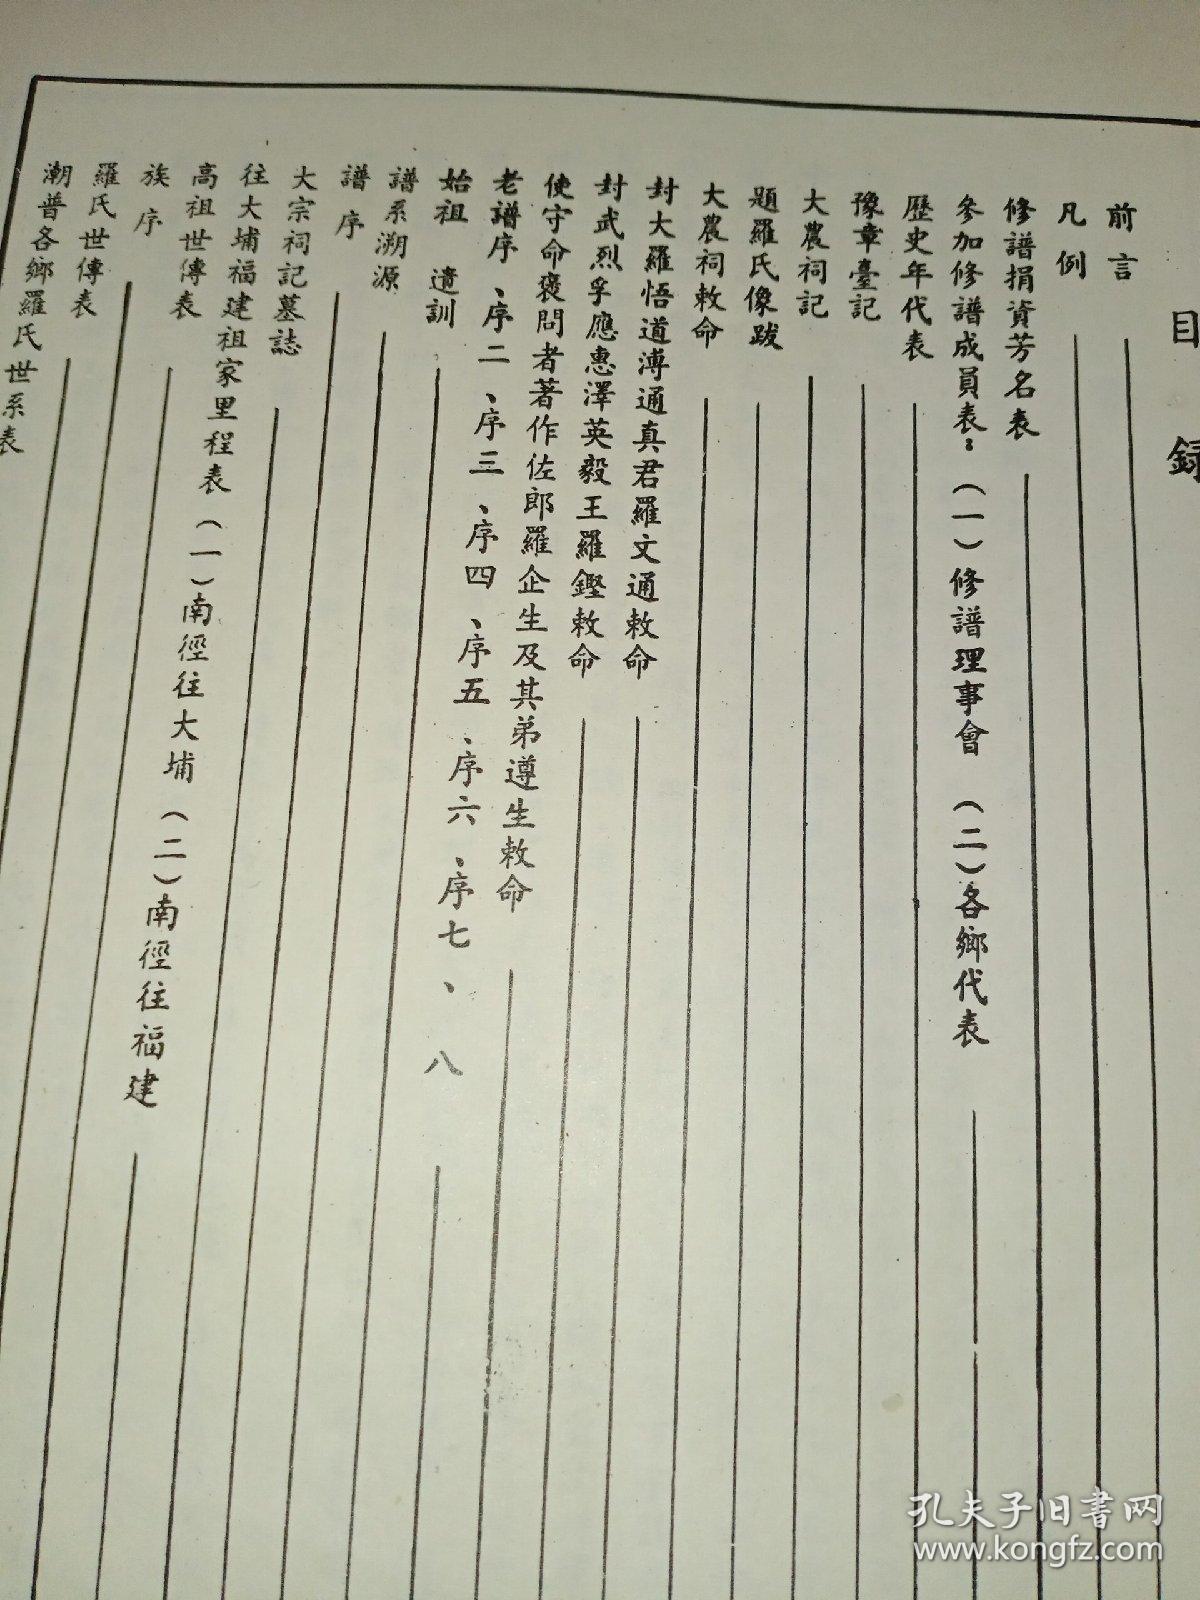 目録
前言
凡例
修譜捐資芳名表
參加修譜成員表：（一）修譜理事會 （二）各鄉代表
歷史年代表
豫章臺記
大農祠記
題羅氏像跋
大農祠敕命
封大羅悟道溥通真君羅文通敕命
封武烈孚應惠澤英毅王羅鏗敕命
使守命褒問者著作佐郎羅企生及其弟遵生敕命
老譜序、序二、序三、序四、序五、序六、序七、八
始祖 遺訓
譜系溯源
譜序
大宗祠記墓誌
往大埔福建祖家里程表（一）南徑往大埔（二）南徑往福建
高祖世傳表
族序
羅氏世傳表
潮普各鄉羅氏世系表
孔夫子旧书网
www.kongfz.com